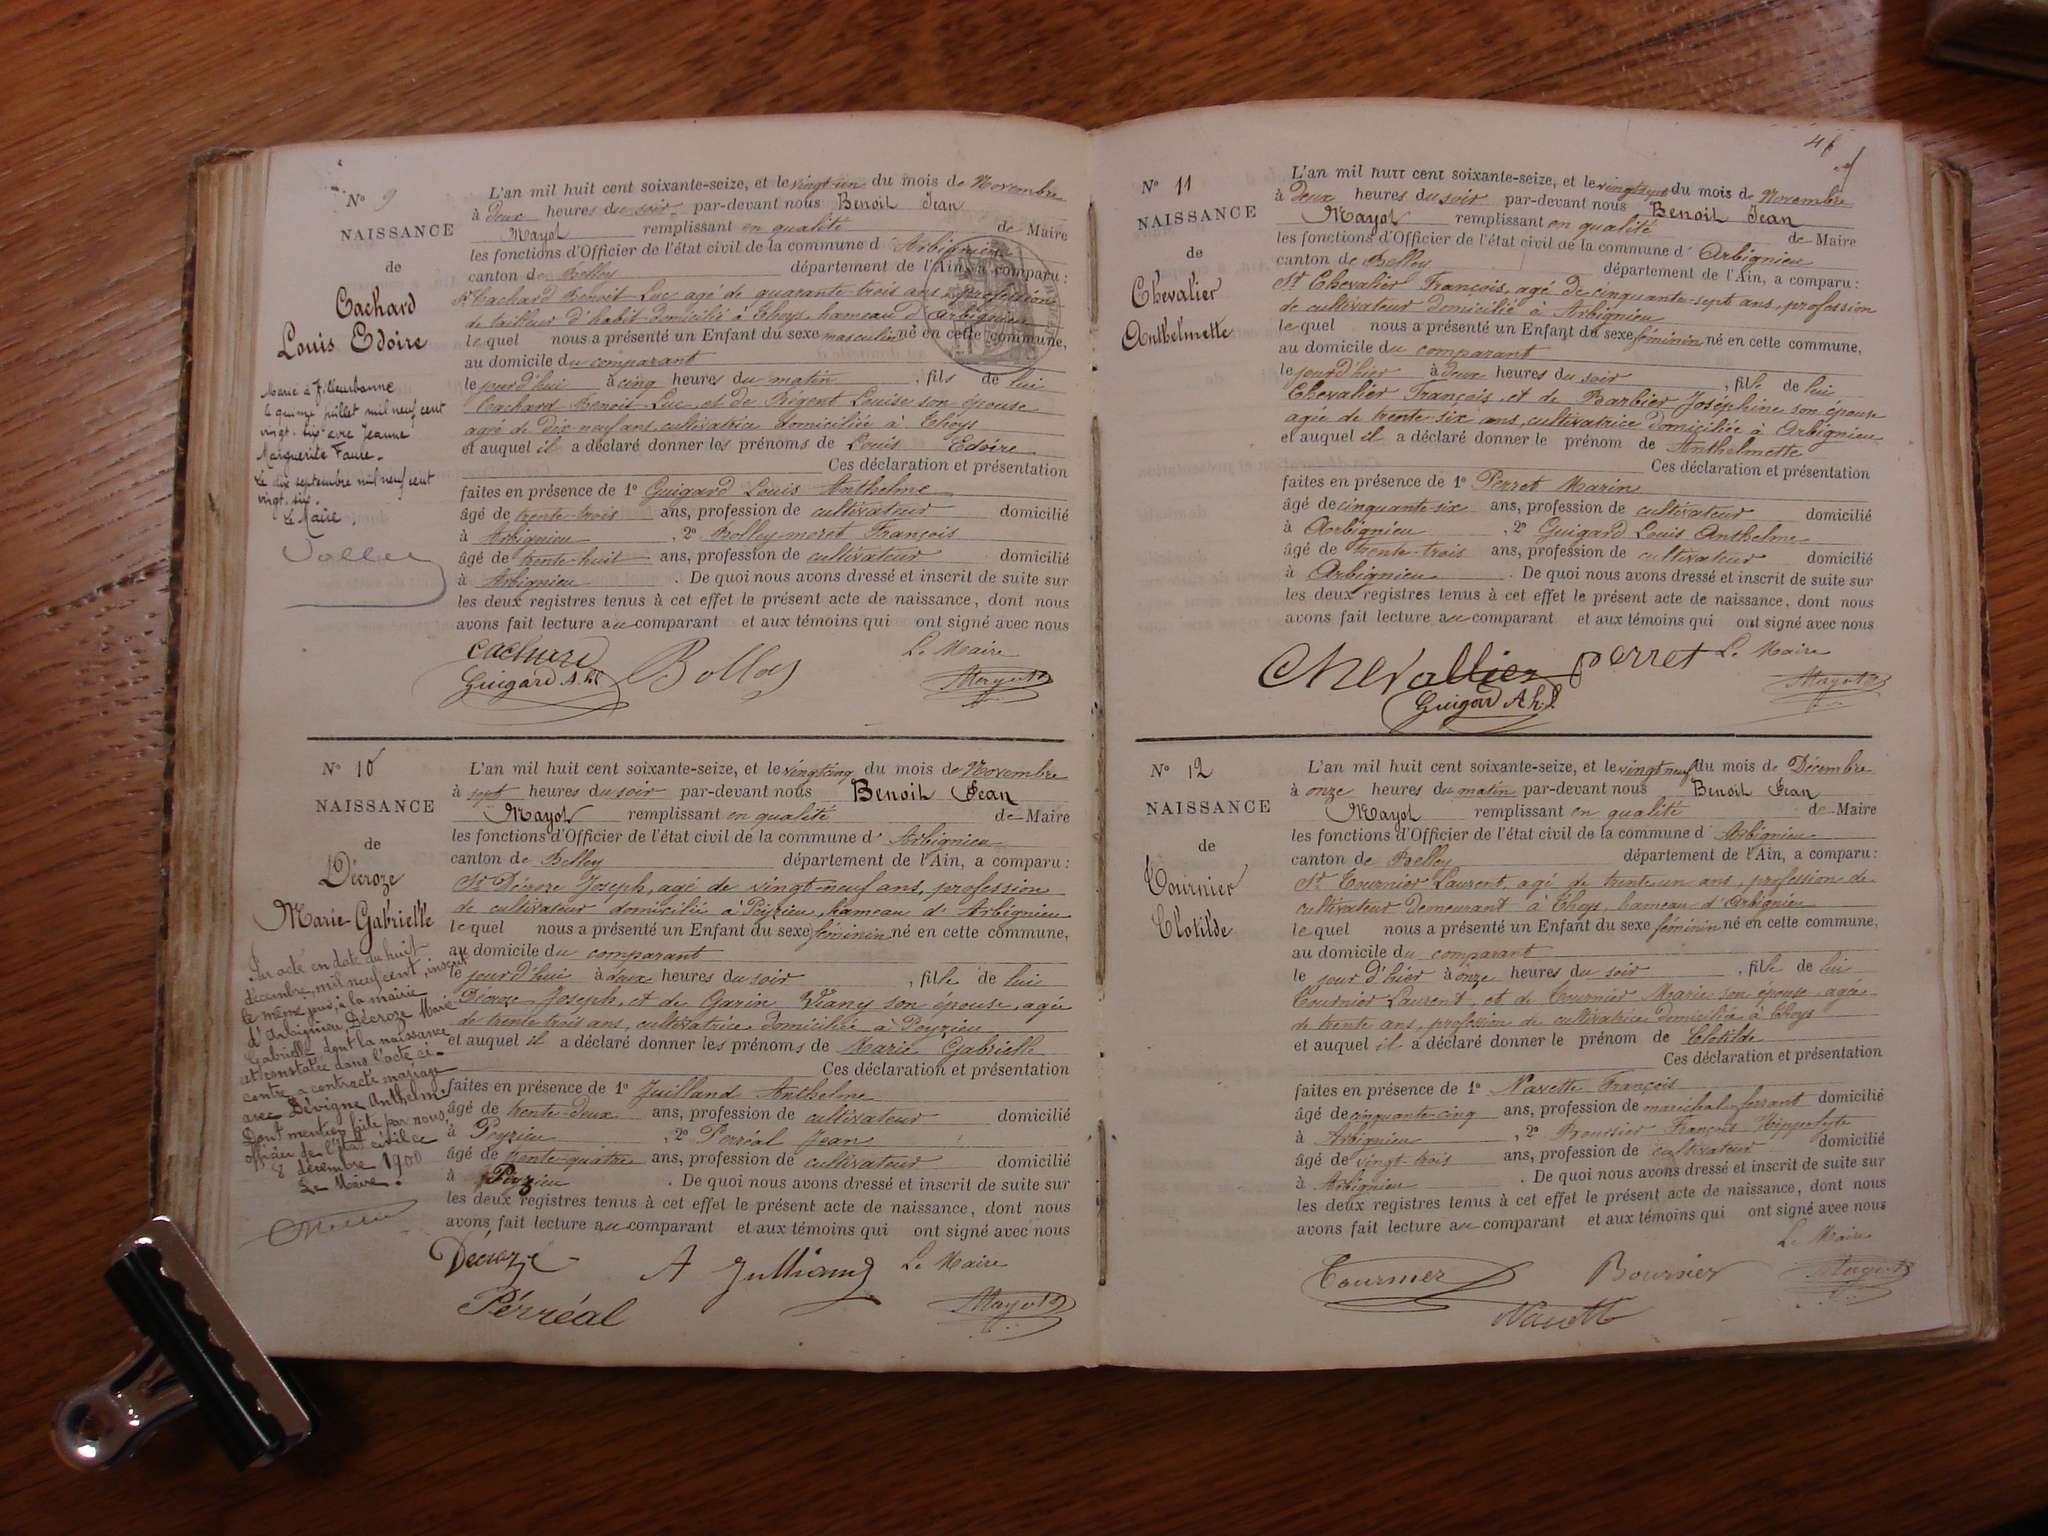 N° 9
NAISSANCE
de
Cachard
Louis Edoire
Marié à Villeurbanne
le quinze juillet mil neuf cent
vingt-six avec Jeanne
Marguerite Faure.
Le dix septembre mil neuf cent
vingt-six.
Le Maire,
L'an mil huit cent soixante-seize, et le vingt un du mois de Novembre
à deux heures du soir par-devant nous Benoit Jean
Mayot remplissant en qualité de Maire
les fonctions d'Officier de l'état civil de la commune d'Arbignieu
canton de Belley département de l'Ain, a comparu :
Sr Cachard Benoit Luc agé de quarante-trois ans, profession
de tailleur d'habit domicilié à Thoys, hameau d'Arbignieu
lequel nous a présenté un Enfant du sexe masculin né en cette commune,
au domicile du comparant
le jourd'hui à cinq heures du matin, fils de lui
Cachard Benoit Luc, et de Rigent Louise son épouse
agée de dix-neuf ans, cultivatrice domiciliée à Thoys
et auquel il a déclaré donner les prénoms de Louis Edoire
Ces déclaration et présentation
faites en présence de 1° Guigard Louis Anthelme
âgé de trente-trois ans, profession de cultivateur domicilié
à Arbignieu, 2° Bolley moret François
âgé de trente-huit ans, profession de cultivateur domicilié
à Arbignieu. De quoi nous avons dressé et inscrit de suite sur
les deux registres tenus à cet effet le présent acte de naissance, dont nous
avons fait lecture au comparant et aux témoins qui ont signé avec nous
Cachard Le Maire
Guigard A. L. Bolley Mayot
N° 10
NAISSANCE
de
Décroze
Marie Gabrielle
Par acte en date du huit
décembre, mil neuf cent, inscrit
le même jour, à la mairie
d'Arbignieu, Décroze Marie
Gabrielle dont la naissance
est constatée dans l'acte ci-
contre a contracté mariage
avec Dévigne Anthelme
Dont mention faite par nous,
officier de l'état civil ce
8 décembre 1900
Le Maire.
L'an mil huit cent soixante-seize, et le vingt cinq du mois de Novembre
à sept heures du soir par-devant nous Benoit Jean
Mayot remplissant en qualité de Maire
les fonctions d'Officier de l'état civil de la commune d'Arbignieu
canton de Belley département de l'Ain, a comparu :
Sr Décroze Joseph, agé de vingt-neuf ans, profession
de cultivateur domicilié à Peyzieu, hameau d'Arbignieu
lequel nous a présenté un Enfant du sexe féminin né en cette commune,
au domicile du comparant
le jour d'hui à deux heures du soir, fille de lui
Décroze Joseph, et de Garin Viany son épouse, agée
de trente trois ans, cultivatrice domiciliée à Peyzieu
et auquel il a déclaré donner les prénoms de Marie Gabrielle
Ces déclaration et présentation
faites en présence de 1° Juilland Anthelme
âgé de trente-deux ans, profession de cultivateur domicilié
à Peyzieu, 2° Perréal Jean
âgé de trente-quatre ans, profession de cultivateur domicilié
à Peyzieu. De quoi nous avons dressé et inscrit de suite sur
les deux registres tenus à cet effet le présent acte de naissance, dont nous
avons fait lecture au comparant et aux témoins qui ont signé avec nous
Décroze A Julliand Le Maire
Pérréal Mayot
N° 11
NAISSANCE
de
Chevalier
Anthelmette
L'an mil huit cent soixante-seize, et le du mois de Novembre
à deux heures du soir par-devant nous Benoit Jean
Mayot remplissant en qualité de Maire
les fonctions d'Officier de l'état civil de la commune d'Arbignieu
canton de Belley département de l'Ain, a comparu :
Sr Chevalier François, agé de cinquante-sept ans, profession
de cultivateur domicilié à Arbignieu
lequel nous a présenté un Enfant du sexe féminin né en cette commune,
au domicile du comparant
le jourd'hier à deux heures du soir, fille de lui
Chevalier François, et de Barbier Joséphine son épouse
agée de trente-six ans, cultivatrice domiciliée à Arbignieu
et auquel il a déclaré donner le prénom de Anthelmette
Ces déclaration et présentation
faites en présence de 1° Perret Marin
âgé de cinquante-six ans, profession de cultivateur domicilié
à Arbignieu, 2° Guigard Louis Anthelme
âgé de trente-trois ans, profession de cultivateur domicilié
à Arbignieu. De quoi nous avons dressé et inscrit de suite sur
les deux registres tenus à cet effet le présent acte de naissance, dont nous
avons fait lecture au comparant et aux témoins qui ont signé avec nous
Chevallier Perret Le Maire
Guigard Mayot
N° 12
NAISSANCE
de
Tournier
Clotilde
L'an mil huit cent soixante-seize, et le vingt neuf du mois de Décembre
à onze heures du matin par-devant nous Benoit Jean
Mayot remplissant en qualité de Maire
les fonctions d'Officier de l'état civil de la commune d'Arbignieu
canton de Belley département de l'Ain, a comparu :
Sr Tournier Laurent, agé de trente un ans, profession de
cultivateur demeurant à Thoys, hameau d'Arbignieu
lequel nous a présenté un Enfant du sexe féminin né en cette commune,
au domicile du comparant
le jour d'hier à onze heures du soir, fille de lui
Tournier Laurent, et de Tournier Marie son épouse agée
de trente ans, profession de cultivatrice domiciliée à Thoys
et auquel il a déclaré donner le prénom de Clotilde
Ces déclaration et présentation
faites en présence de 1° Navette François
âgé de cinquante-cinq ans, profession de maréchal ferrant domicilié
à Arbignieu, 2° François Hippolyte
âgé de vingt-trois ans, profession de cultivateur domicilié
à Arbignieu. De quoi nous avons dressé et inscrit de suite sur
les deux registres tenus à cet effet le présent acte de naissance, dont nous
avons fait lecture au comparant et aux témoins qui ont signé avec nous
Le Maire
Tournier Mayot